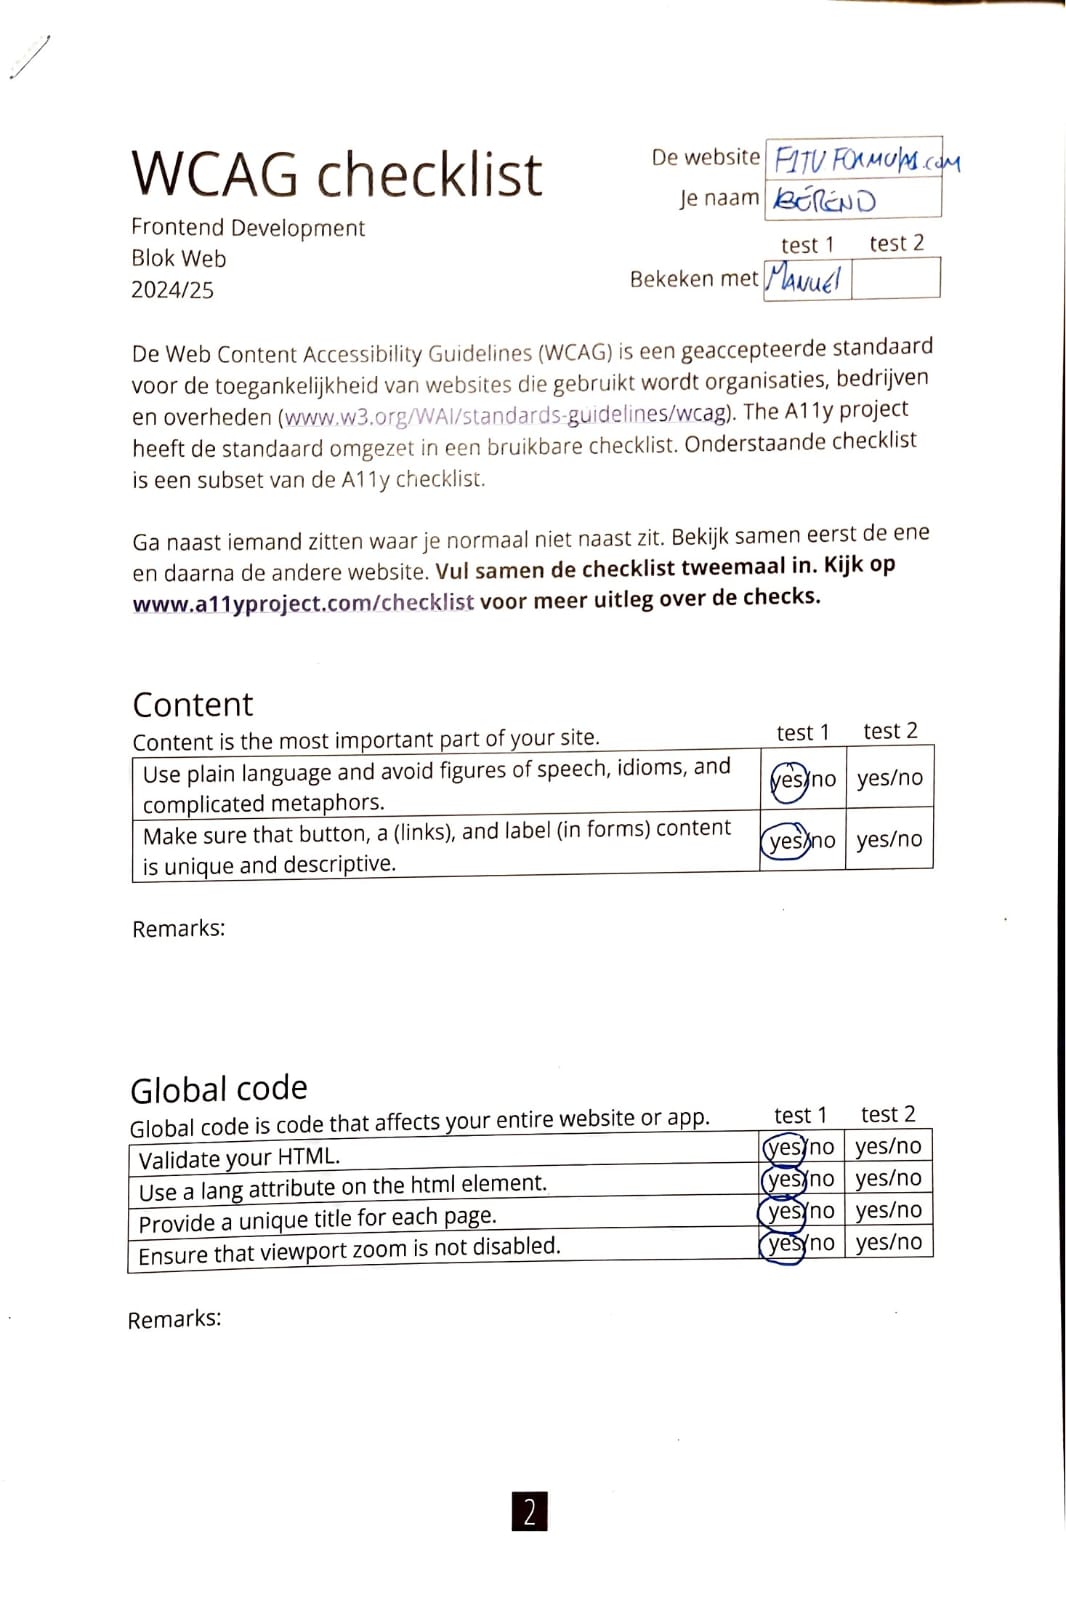 WCAG checklist
Frontend Development
Blok Web
2024/25
De website F1TV FORMULA1.COM
Je naam BEREND
test 1 test 2
Bekeken met MANUEl
De Web Content Accessibility Guidelines (WCAG) is een geaccepteerde standaard
voor de toegankelijkheid van websites die gebruikt wordt organisaties, bedrijven
en overheden (www.w3.org/WAI/standards-guidelines/wcag). The A11y project
heeft de standaard omgezet in een bruikbare checklist. Onderstaande checklist
is een subset van de A11y checklist.
Ga naast iemand zitten waar je normaal niet naast zit. Bekijk samen eerst de ene
en daarna de andere website. Vul samen de checklist tweemaal in. Kijk op
www.a11yproject.com/checklist voor meer uitleg over de checks.
Content
Content is the most important part of your site. test 1 test 2
Use plain language and avoid figures of speech, idioms, and
complicated metaphors. yes/no yes/no
Make sure that button, a (links), and label (in forms) content
is unique and descriptive. yes/no yes/no
Remarks:
Global code
Global code is code that affects your entire website or app. test 1 test 2
Validate your HTML. yes/no yes/no
Use a lang attribute on the html element. yes/no yes/no
Provide a unique title for each page. yes/no yes/no
Ensure that viewport zoom is not disabled. yes/no yes/no
Remarks:
2